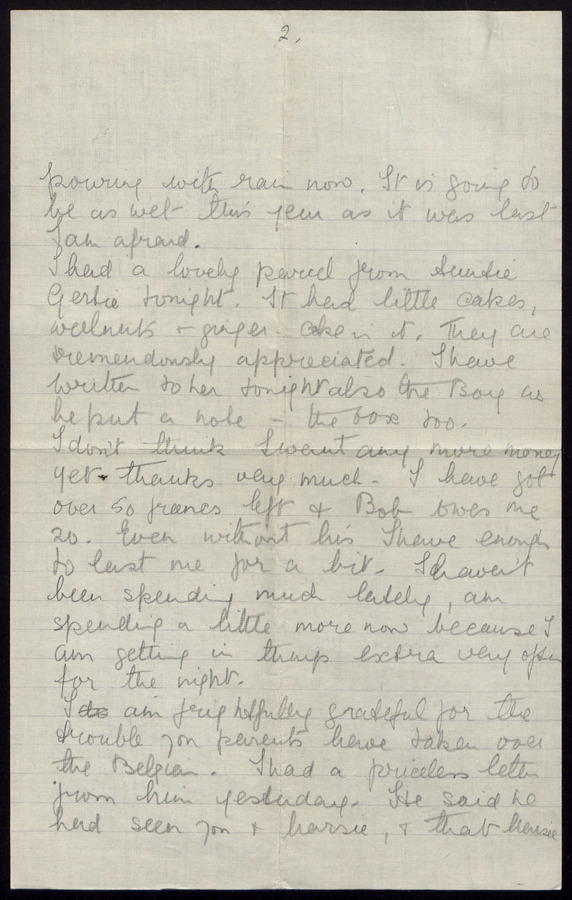 2.
pouring with rain now. It is going to
be as wet this year as it was last
I am afraid.
I had a lovely parcel from Auntie
Gertie tonight. It had little cakes,
walnuts + ginger cake in it. They are
tremendously appreciated. I have
written to her tonight also the Boy as
he put a note in the box too.
I don't think I want any more money
yet thanks very much - I have got
over 50 francs left & Bob owes me
20. Even without his I have enough
to last me for a bit. I haven't
been spending much lately, am
spending a little more now because I
am getting in things extra very often
for the night.
I am frightfully grateful for the
trouble you parents have taken over
the Belgian. I had a priceless letter
from him yesterday. He said he
had seen you & , & that